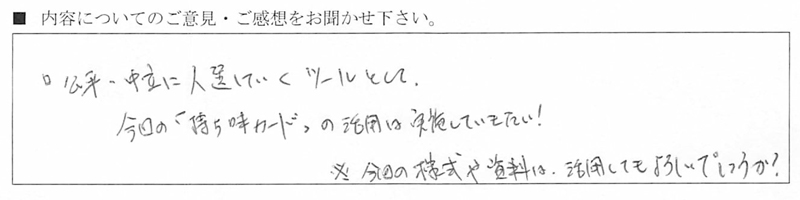 ■ 内容についてのご意見・ご感想をお聞かせ下さい。
○ 公平・中立に人選していくツールとして、
今回の「持ち味カード」の活用は実施していきたい!
※ 今回の様式や資料は、活用してもよろしいでしょうか?